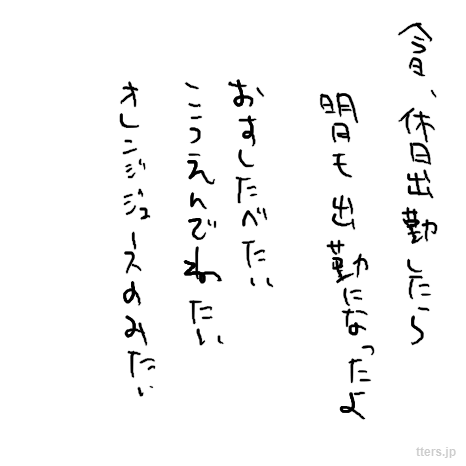 今日、休日出勤したら
明日も出勤になったよ
おすしたべたい
こうえんでねたい
オレンジジュースのみたい
tters.jp